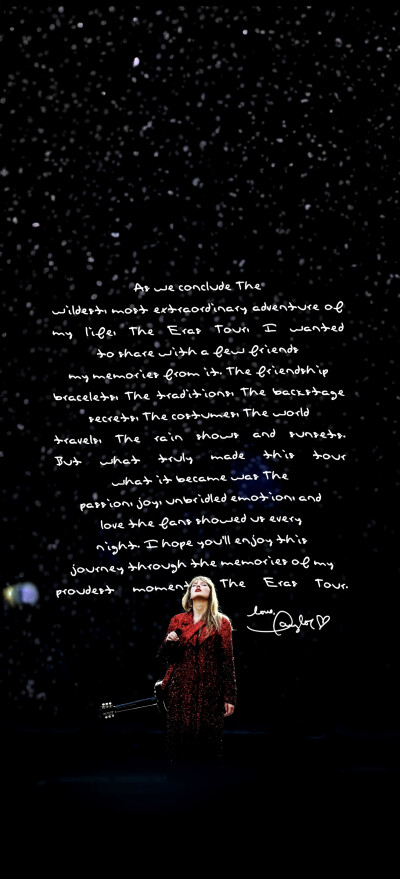 As we conclude The
wildest, most extraordinary adventure of
my life, The Eras Tour, I wanted
to share with a few friends
my memories from it. The friendship
bracelets, The traditions, The backstage
secrets, The costumes, The world
travels, The rain shows and sunsets.
But what truly made this tour
what it became was The
passion, joy, unbridled emotion, and
love the fans showed us every
night. I hope you'll enjoy this
journey through the memories of my
proudest moment, The Eras Tour.
love,
Taylor♡